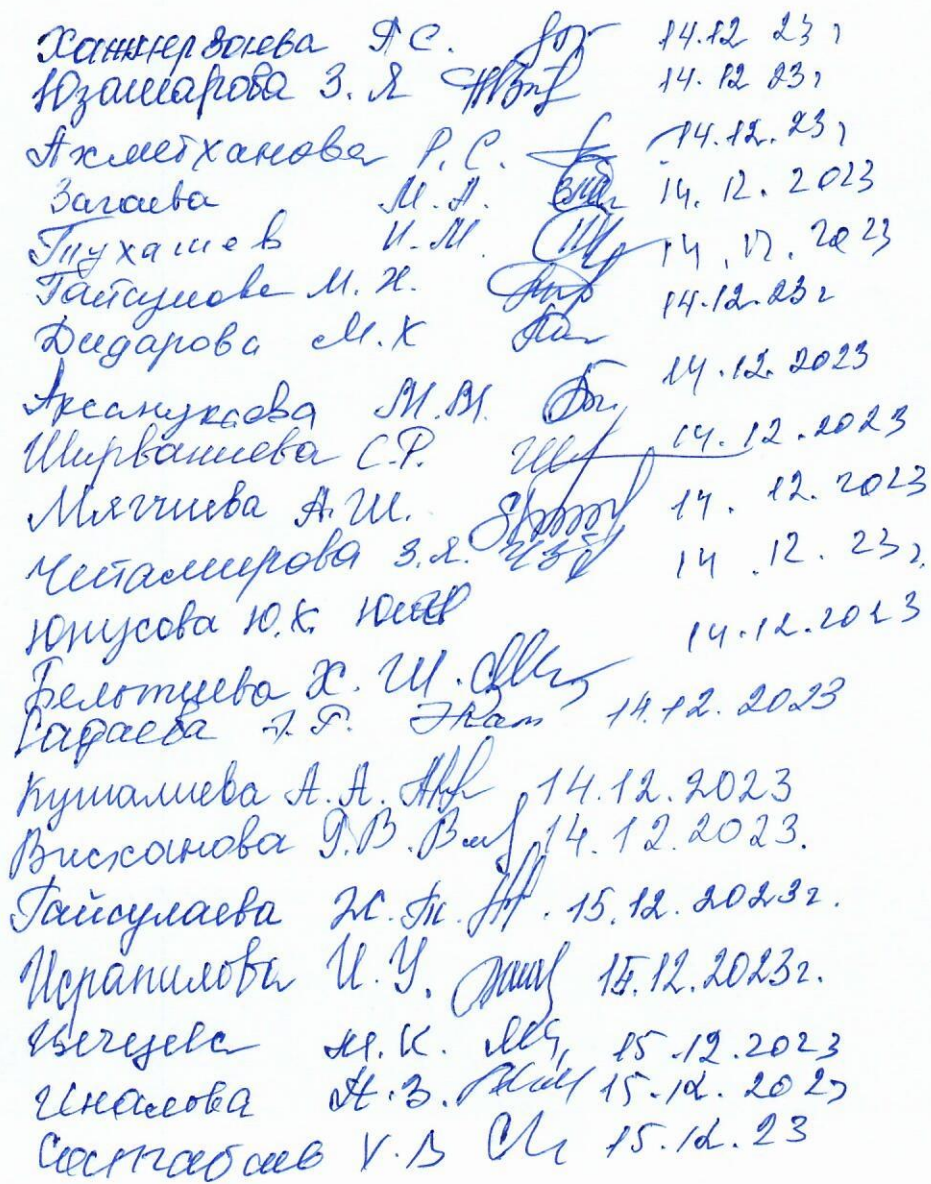 Ханмерзаева Я С. 14.12 23 г
Юзашарова З. Я 14.12 23 г
Ахметханова Р. С. 14.12. 23 г
Загаева М. А. 14. 12. 2023
Тухашев И. М. 14. 12. 2023
Гайсумова М. Х. 14.12.23 г
Дидарова М. Х
Арсанукаева М. М. 14.12. 2023
Ширваниева С. Р. 14.12.2023
Мягчиева А. Ш. 14. 12. 2023
Читамирова З. Я. 14. 12. 23 г.
Юнусова Ю. Х. 14.12.2023
Х. Ш.
14.12. 2023
Кушалиева А. А. 14.12.2023
Висханова В. 14.12.2023.
Гайсулаева Ж. 15.12.2023 г.
Исрапилова И. У. 15.12.2023 г.
М. К. 15.12.2023
Иналова А. З. 15.12. 2023
15.12.23